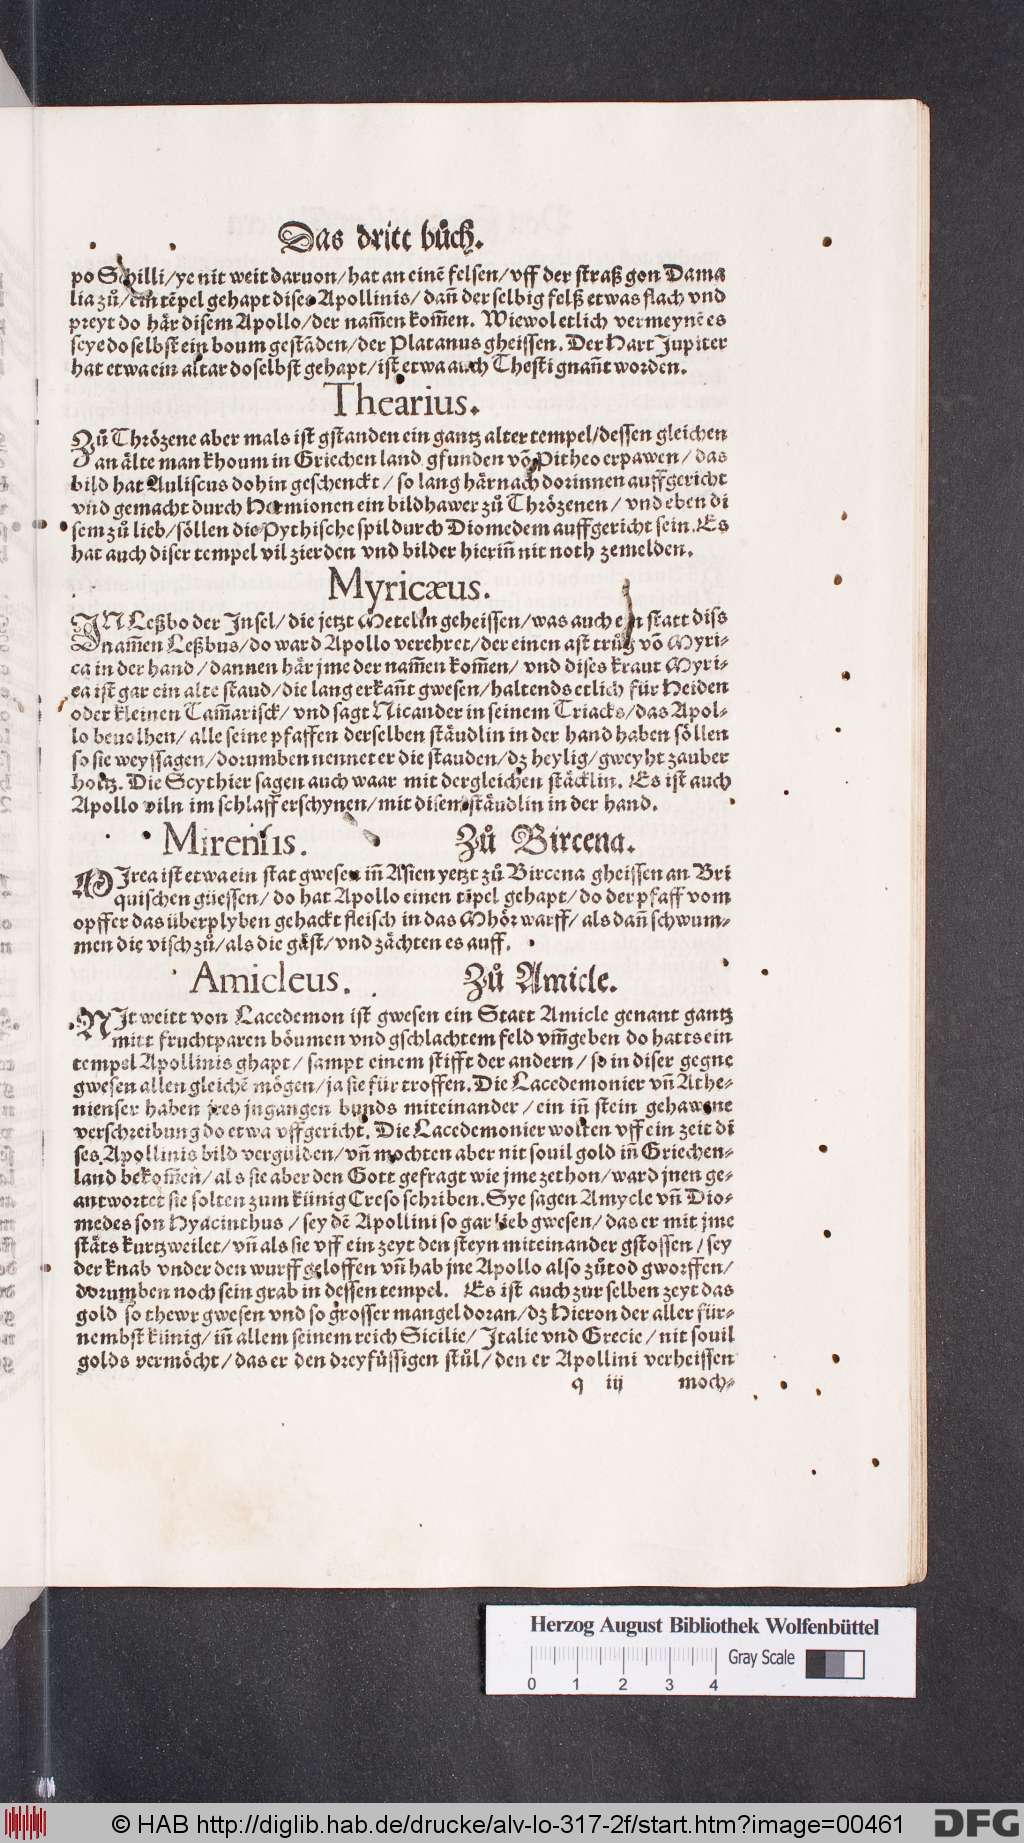 Das dritt bůch.
po Schilli/ye nit weit daruon/hat an einē felsen/vff der straß gon Dama
lia zů/ein tēpel gehapt dises Apollinis/dañ der selbig felß etwas flach vnd
preyt do här disem Apollo/der nam̄en kom̄en. Wiewol etlich vermeynē es
seye do selbst ein boum gestāden/der Platanus gheissen. Der Hart Jupiter
hat etwa ein altar doselbst gehapt/ist etwa auch Thesti gnañt worden.
Thearius.
Zů Thrözene aber mals ist gstanden ein gantz alter tempel/dessen gleichen
an älte man khoum in Griechen land gfunden vō Pitheo erpawen/das
bild hat Auliscus dohin geschenckt/so lang här nach dorinnen auffgericht
vnd gemacht durch Hermionen ein bildhawer zů Thrözenen/vnd eben di
sem zů lieb/söllen die Pythische spil durch Diomedem auffgericht sein. Es
hat auch diser tempel vil zierden vnd bilder hieriñ nit noth zemelden.
Myricæus.
IN Leßbo der Insel/die jetzt Metelin geheissen/was auch ein statt diss
nam̄en Leßbus/do ward Apollo verehret/der einen ast trůg vō Myri-
ca in der hand/dannen här jme der nam̄en kom̄en/vnd dises kraut Myri-
ca ist gar ein alte staud/die lang erkañt gwesen/haltends etlich für Heiden
oder kleinen Tam̄arisck/vnd sagt Nicander in seinem Triacks/das Apol-
lo beuolhen/alle seine pfaffen derselben stäudlin in der hand haben söllen
so sie weyssagen/dorumben nennet er die stauden/dz heylig/gweyht zauber
holtz. Die Scythier sagen auch waar mit dergleichen stäcklin. Es ist auch
Apollo viln im schlaff erschynen/mit disem stäudlin in der hand.
Mirensis. Zů Bircena.
MIrea ist etwa ein stat gwesen iñ Asien yetzt zů Bircena gheissen an Bri
quischen güessen/do hat Apollo einen tēpel gehapt/do der pfaff vom
opffer das überplyben gehackt fleisch in das Mhör warff/als dañ schwum-
men die visch zů/als die gäst/vnd zächten es auff.
Amicleus. Zů Amicle.
NIt weitt von Lacedemon ist gwesen ein Statt Amicle genant gantz
mitt fruchtparen böumen vnd gschlachtem feld vm̄geben do hatts ein
tempel Apollinis ghapt/sampt einem stifft der andern/so in diser gegne
gwesen allen gleichē mögen/ja sie für troffen. Die Lacedemonier vñ Athe-
nienser haben jres jngangen bunds miteinander/ein iñ stein gehawene
verschreibung do etwa vffgericht. Die Lacedemonier wolten vff ein zeit di
ses Apollinis bild vergulden/vñ mochten aber nit souil gold iñ Griechen-
land bekom̄en/als sie aber den Gott gefragt wie jme zethon/ward jnen ge-
antwortet sie solten zum künig Creso schriben. Sye sagen Amycle vñ Dio-
medes son Hyacinthus/sey dē Apollini so gar lieb gwesen/das er mit jme
stäts kurtzweilet/vñ als sie vff ein zeyt den steyn miteinander gstossen/sey
der knab vnder den wurff geloffen vñ hab jne Apollo also zůtod gworffen/
dorumben noch sein grab in dessen tempel. Es ist auch zur selben zeyt das
gold so thewr gwesen vnd so grosser mangel doran/dz Hieron der aller für-
nembst künig/iñ allem seinem reich Sicilie/Italie vnd Grecie/nit souil
golds vermöcht/das er den dreyfüssigen stůl/den er Apollini verheissen
q iij moch-
Herzog August Bibliothek Wolfenbüttel
Gray Scale
0 1 2 3 4
© HAB http://diglib.hab.de/drucke/alv-lo-317-2f/start.htm?image=00461
DFG